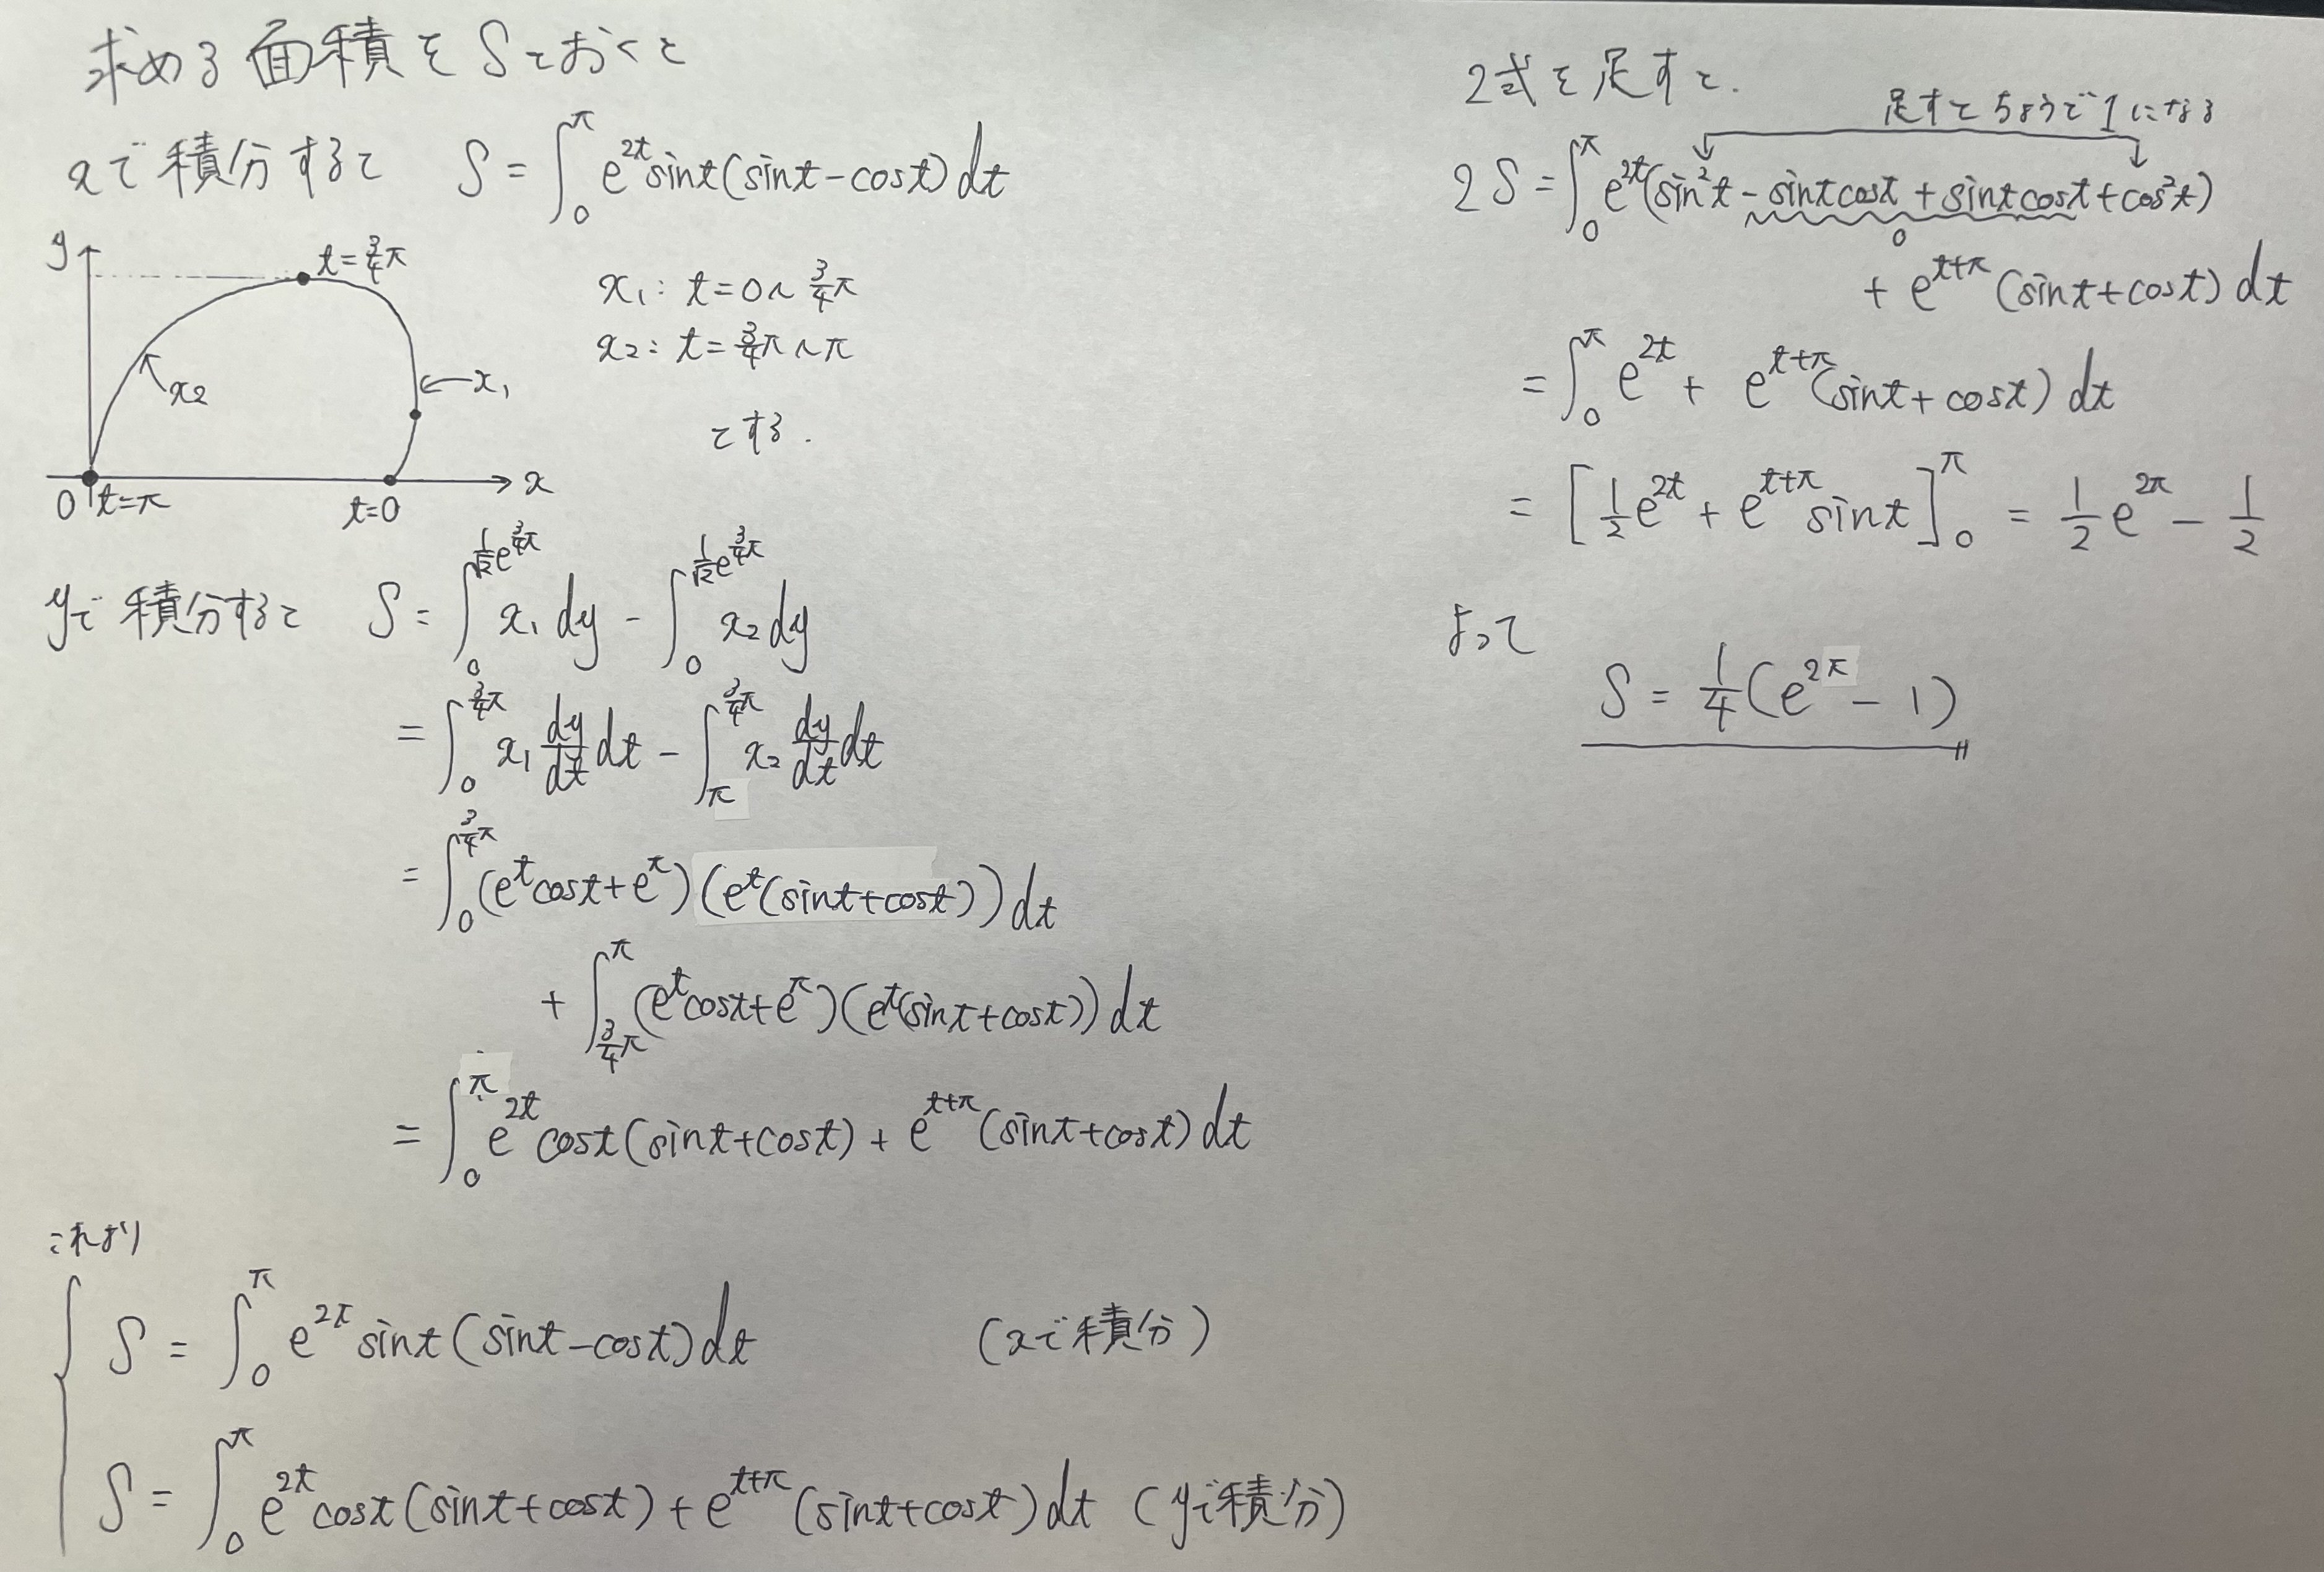 求める面積をSとおくと
xで積分すると S = ∫_0^π e^{2t} sint(sint-cost)dt
y
t=3/4π
x₁: t=0~3/4π
x₂: t=3/4π~π
x₂
x₁
とする.
0 t=π t=0 x
yで積分すると S = ∫_0^{1/√2 e^{3/4π}} x₁dy - ∫_0^{1/√2 e^{3/4π}} x₂dy
= ∫_0^{3/4π} x₁ dy/dt dt - ∫_π^{3/4π} x₂ dy/dt dt
= ∫_0^{3/4π} (e^t cost+e^π)(e^t(sint+cost))dt
+ ∫_{3/4π}^π (e^t cost+e^π)(e^t(sint+cost))dt
= ∫_0^π e^{2t} cost(sint+cost) + e^{t+π}(sint+cost)dt
これより
S = ∫_0^π e^{2t} sint(sint-cost)dt (xで積分)
S = ∫_0^π e^{2t} cost(sint+cost) + e^{t+π}(sint+cost)dt (yで積分)
2式を足すと.
足すとちょうど1になる
2S = ∫_0^π e^{2t}(sin²t - sintcost + sintcost + cos²t)
0
+ e^{t+π}(sint+cost)dt
= ∫_0^π e^{2t} + e^{t+π}(sint+cost)dt
= [1/2 e^{2t} + e^{t+π} sint]_0^π = 1/2 e^{2π} - 1/2
よって
S = 1/4(e^{2π} - 1)